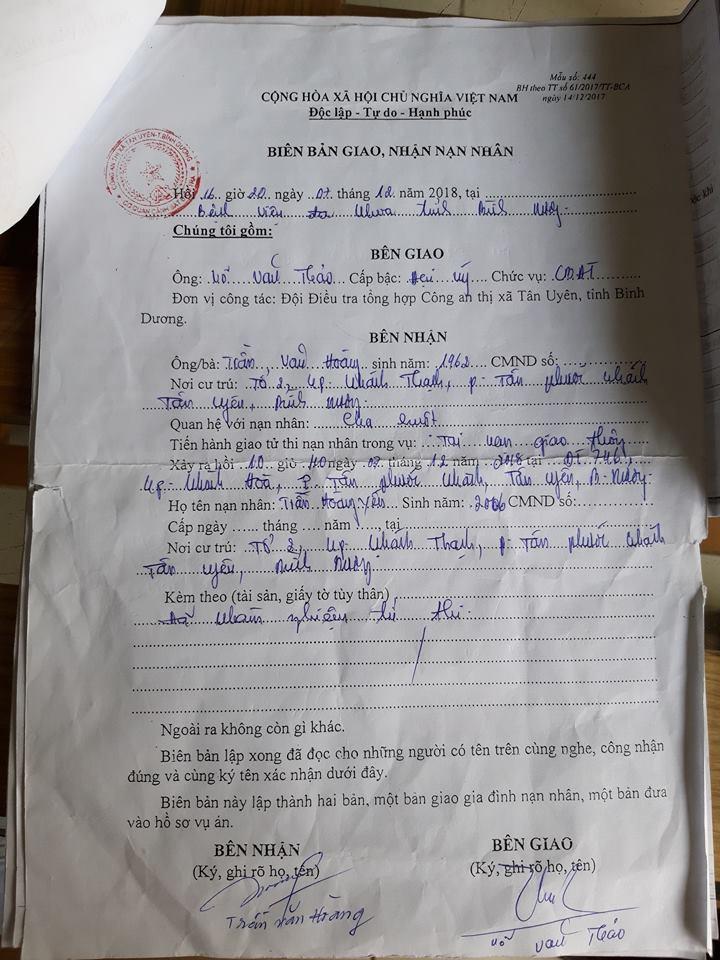 Mẫu số: 444
BH theo TT số 61/2017/TT-BCA
ngày 14/12/2017
CỘNG HÒA XÃ HỘI CHỦ NGHĨA VIỆT NAM
Độc lập - Tự do - Hạnh phúc
BIÊN BẢN GIAO, NHẬN NẠN NHÂN
Hồi 16 giờ 20 ngày 07 tháng 12 năm 2018, tại
Bệnh viện đa khoa tỉnh Bình Dương
Chúng tôi gồm:
BÊN GIAO
Ông: Võ Văn Thảo Cấp bậc: Đại úy Chức vụ: CBĐT
Đơn vị công tác: Đội Điều tra tổng hợp Công an thị xã Tân Uyên, tỉnh Bình
Dương.
BÊN NHẬN
Ông/bà: Trần Văn Hoàng sinh năm: 1962 CMND số:
Nơi cư trú: Tổ 2, kp. Khánh Thạnh, p. Tân Phước Khánh
Tân Uyên, Bình Dương
Quan hệ với nạn nhân: Cha ruột
Tiến hành giao tử thi nạn nhân trong vụ: Tai nạn giao thông
Xảy ra hồi 10 giờ 40 ngày 07 tháng 12 năm 2018 tại ĐT 746,
kp. Khánh Hoà, p. Tân Phước Khánh, Tân Uyên, B. Dương
Họ tên nạn nhân: Trần Hoàng Yến Sinh năm: 2006 CMND số:
Cấp ngày ...... tháng .... năm ....., tại
Nơi cư trú: Tổ 2, kp. Khánh Thạnh, p. Tân Phước Khánh
Tân Uyên, Bình Dương
Kèm theo (tài sản, giấy tờ tùy thân)
Đã khám nghiệm tử thi
Ngoài ra không còn gì khác.
Biên bản lập xong đã đọc cho những người có tên trên cùng nghe, công nhận
đúng và cùng ký tên xác nhận dưới đây.
Biên bản này lập thành hai bản, một bản giao gia đình nạn nhân, một bản đưa
vào hồ sơ vụ án.
BÊN NHẬN
(Ký, ghi rõ họ, tên)
Trần Văn Hoàng
BÊN GIAO
(Ký, ghi rõ họ, tên)
Võ Văn Thảo